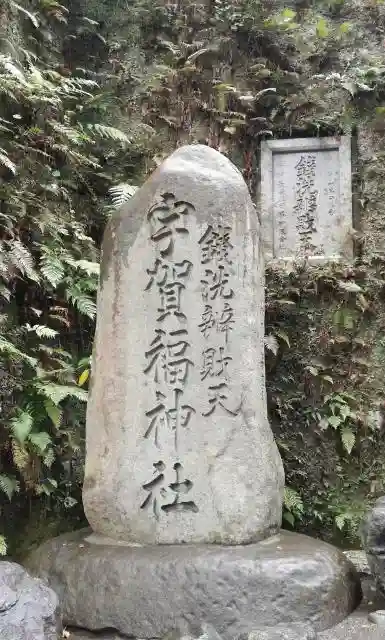 錢洗辨財天
宇賀福神社
錢洗辨財天